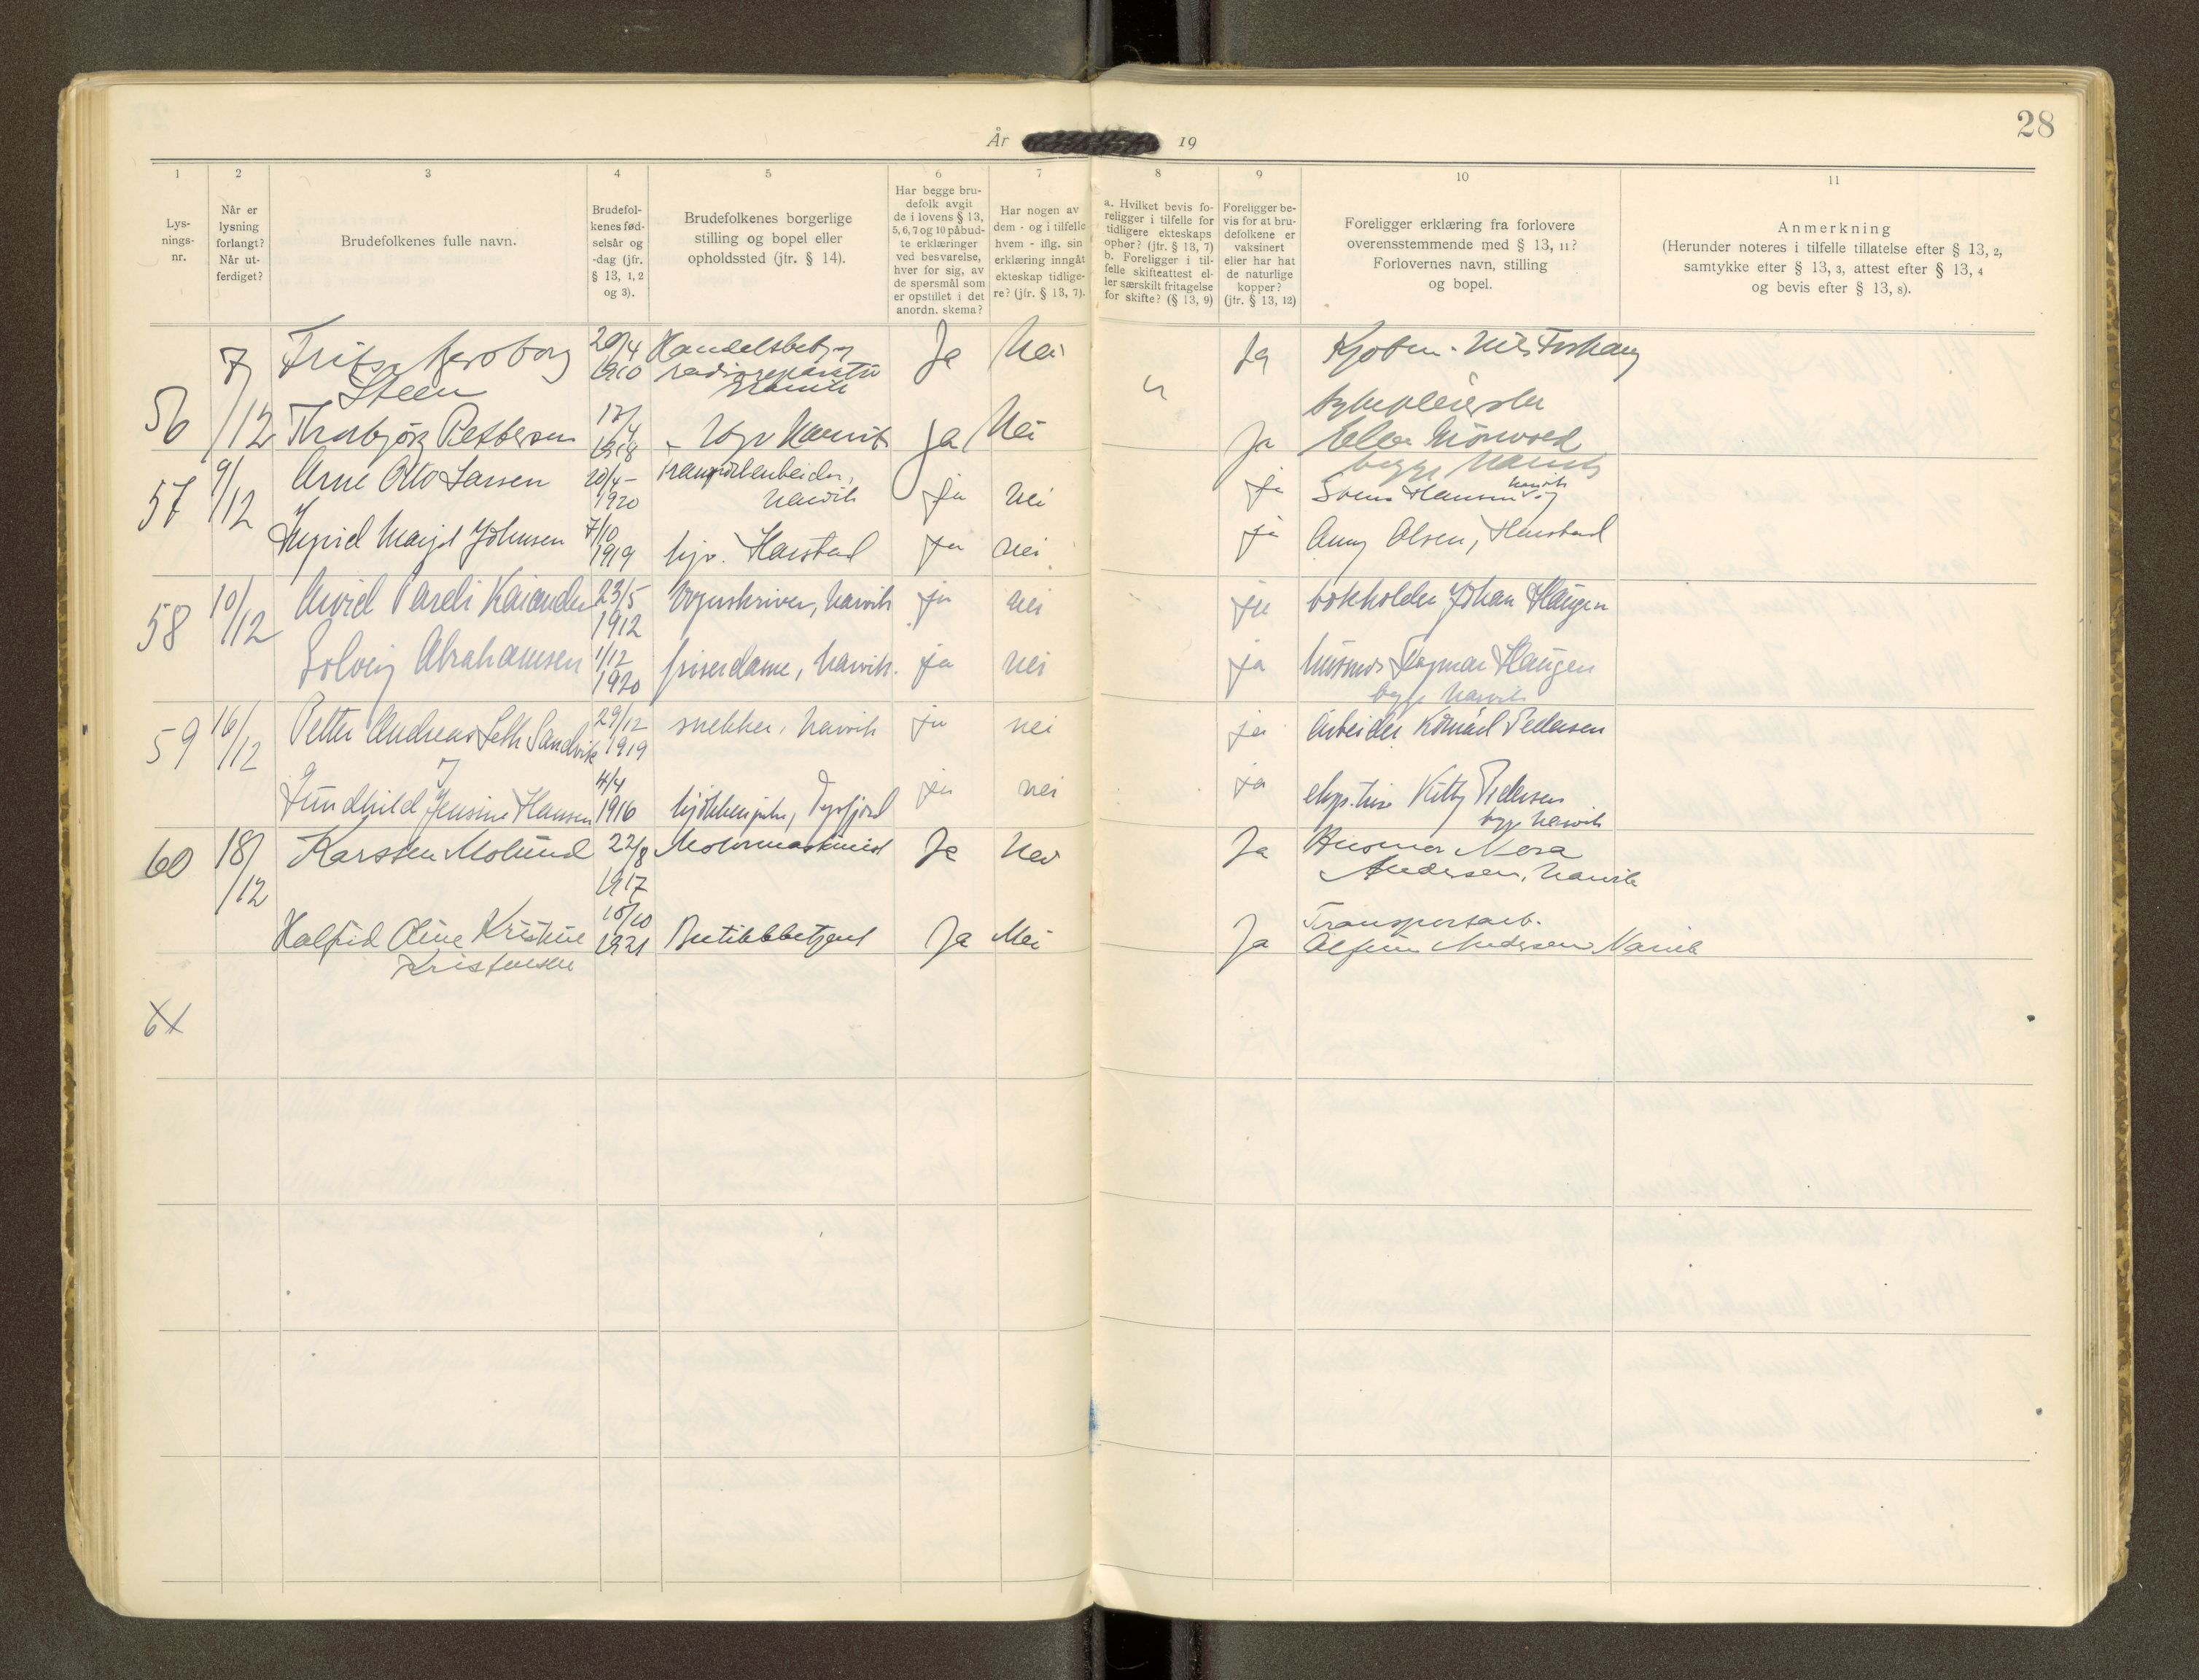 28
År 19
1 2 3 4 5 6 7 8 9 10 11
Lys-
nings-
nr.
Når er
lysning
forlangt?
Når ut-
ferdiget?
Brudefolkenes fulle navn.
Brudefol-
kenes fød-
selsår og
-dag (jfr.
§ 13, 1, 2
og 3).
Brudefolkenes borgerlige
stilling og bopel eller
opholdssted (jfr. § 14).
Har begge bru-
defolk avgit
de i lovens § 13,
5, 6, 7 og 10 påbud-
te erklæringer
ved besvarelse,
hver for sig, av
de spørsmål som
er opstillet i det
anordn. skema?
Har nogen av
dem - og i tilfelle
hvem - iflg. sin
erklæring inngåt
ekteskap tidlige-
re? (jfr. § 13, 7).
a. Hvilket bevis fo-
religger i tilfelle for
tidligere ekteskaps
ophør? (jfr. § 13, 7)
b. Foreligger i til-
felle skifteattest el-
ler særskilt fritagelse
for skifte? (§ 13, 9)
Foreligger be-
vis for at bru-
defolkene er
vaksinert
eller har hat
de naturlige
kopper?
(jfr. § 13, 12)
Foreligger erklæring fra forlovere
overensstemmende med § 13, 11?
Forlovernes navn, stilling
og bopel.
Anmerkning
(Herunder noteres i tilfelle tillatelse efter § 13, 2,
samtykke efter § 13, 3, attest efter § 13, 4
og bevis efter § 13, 8).
56 7/12 20/4 1910 Ja Nei Ja
Steen
Thorbjørg Pettersen 1918 Narvik Ja Nei Ja
begge Narvik
57 9/12 Arne Otto Larsen 20/4 - 1920 transportarbeider, Narvik ja nei ja Hansen Narvik og
Ingrid Margit Johnsen 7/10 1919 Harstad ja nei ja Anny Olsen, Harstad
58 10/12 Arvid 23/5 1912 Narvik ja nei ja bokholder Johan Haugen
Solveig Abrahamsen 1/12 1920 friserdame, Narvik. ja nei ja husmor Dagmar Haugen
begge Narvik
59 16/12 Petter Andreas Seth Sandvik 29/12 1919 snekker, Narvik ja nei ja Arbeider Konrad Pedersen
Jensine Hansen 4/4 1916 Tysfjord ja nei ja Kitty Pedersen
begge Narvik
60 18/12 Karsten Molund 22/8 1917 Motormaskinist Ja Nei Ja Husmor Nora
Andersen, Narvik
Kristine 10/10 1921 Butikkbetjent Ja Nei Ja Transportarb.
Andersen Narvik
Kristensen
61